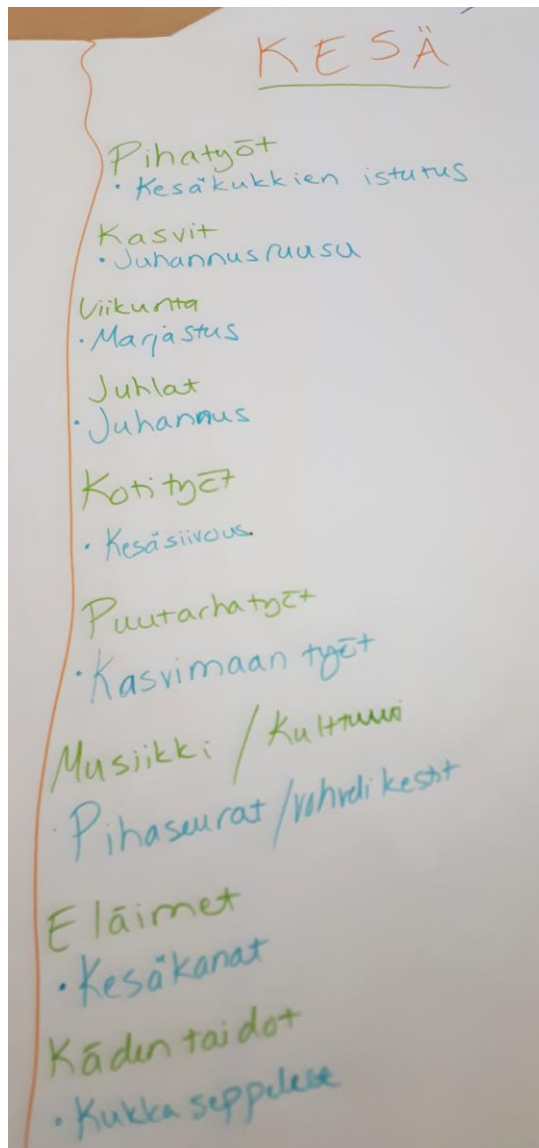 KESÄ
Pihatyöt
• Kesäkukkien istutus
Kasvit
• Juhannusruusu
Liikunta
• Marjastus
Juhlat
• Juhannus
Kotityöt
• Kesäsiivous
Puutarhatyöt
• Kasvimaan työt
Musiikki / Kulttuuri
• Pihaseurat / vohvelikestit
Eläimet
• Kesäkanat
Käden taidot
• Kukka seppeleet